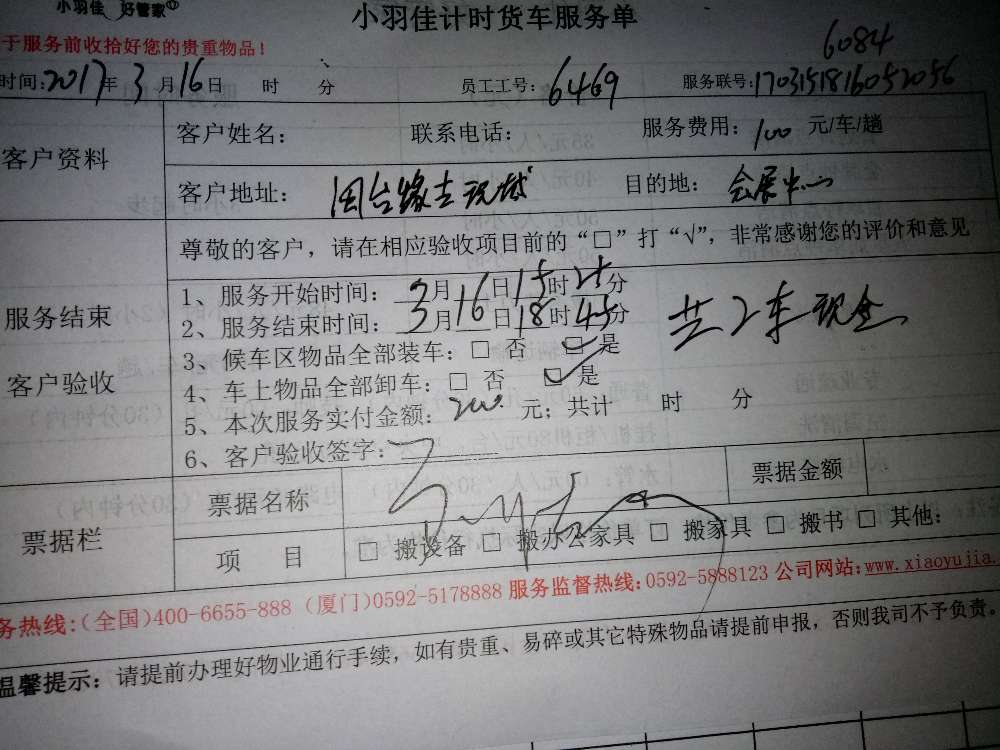 小羽佳 好管家
小羽佳计时货车服务单
于服务前收拾好您的贵重物品！
6084
时间:2017年3月16日 时 分 员工工号:6469 服务联号:1703151816052056
客户资料
客户姓名: 联系电话: 服务费用:100元/车/趟
客户地址: 闽台缘去现城 目的地: 会展中心
服务结束
客户验收
尊敬的客户，请在相应验收项目前的“□”打“√”，非常感谢您的评价和意见
1、服务开始时间: 3月16日15时25分
2、服务结束时间: 3月16日18时45分
共2车现金
3、候车区物品全部装车:□ 否 ☑是
4、车上物品全部卸车:□ 否 ☑是
5、本次服务实付金额:200元；共计 时 分
6、客户验收签字:
票据栏
票据名称 票据金额
项 目 □ 搬设备 □ 搬办公家具 □ 搬家具 □ 搬书 □ 其他:
务热线:(全国)400-6655-888 (厦门)0592-5178888 服务监督热线:0592-5888123 公司网站:www.xiaoyujia.
温馨提示: 请提前办理好物业通行手续，如有贵重、易碎或其它特殊物品请提前申报，否则我司不予负责。